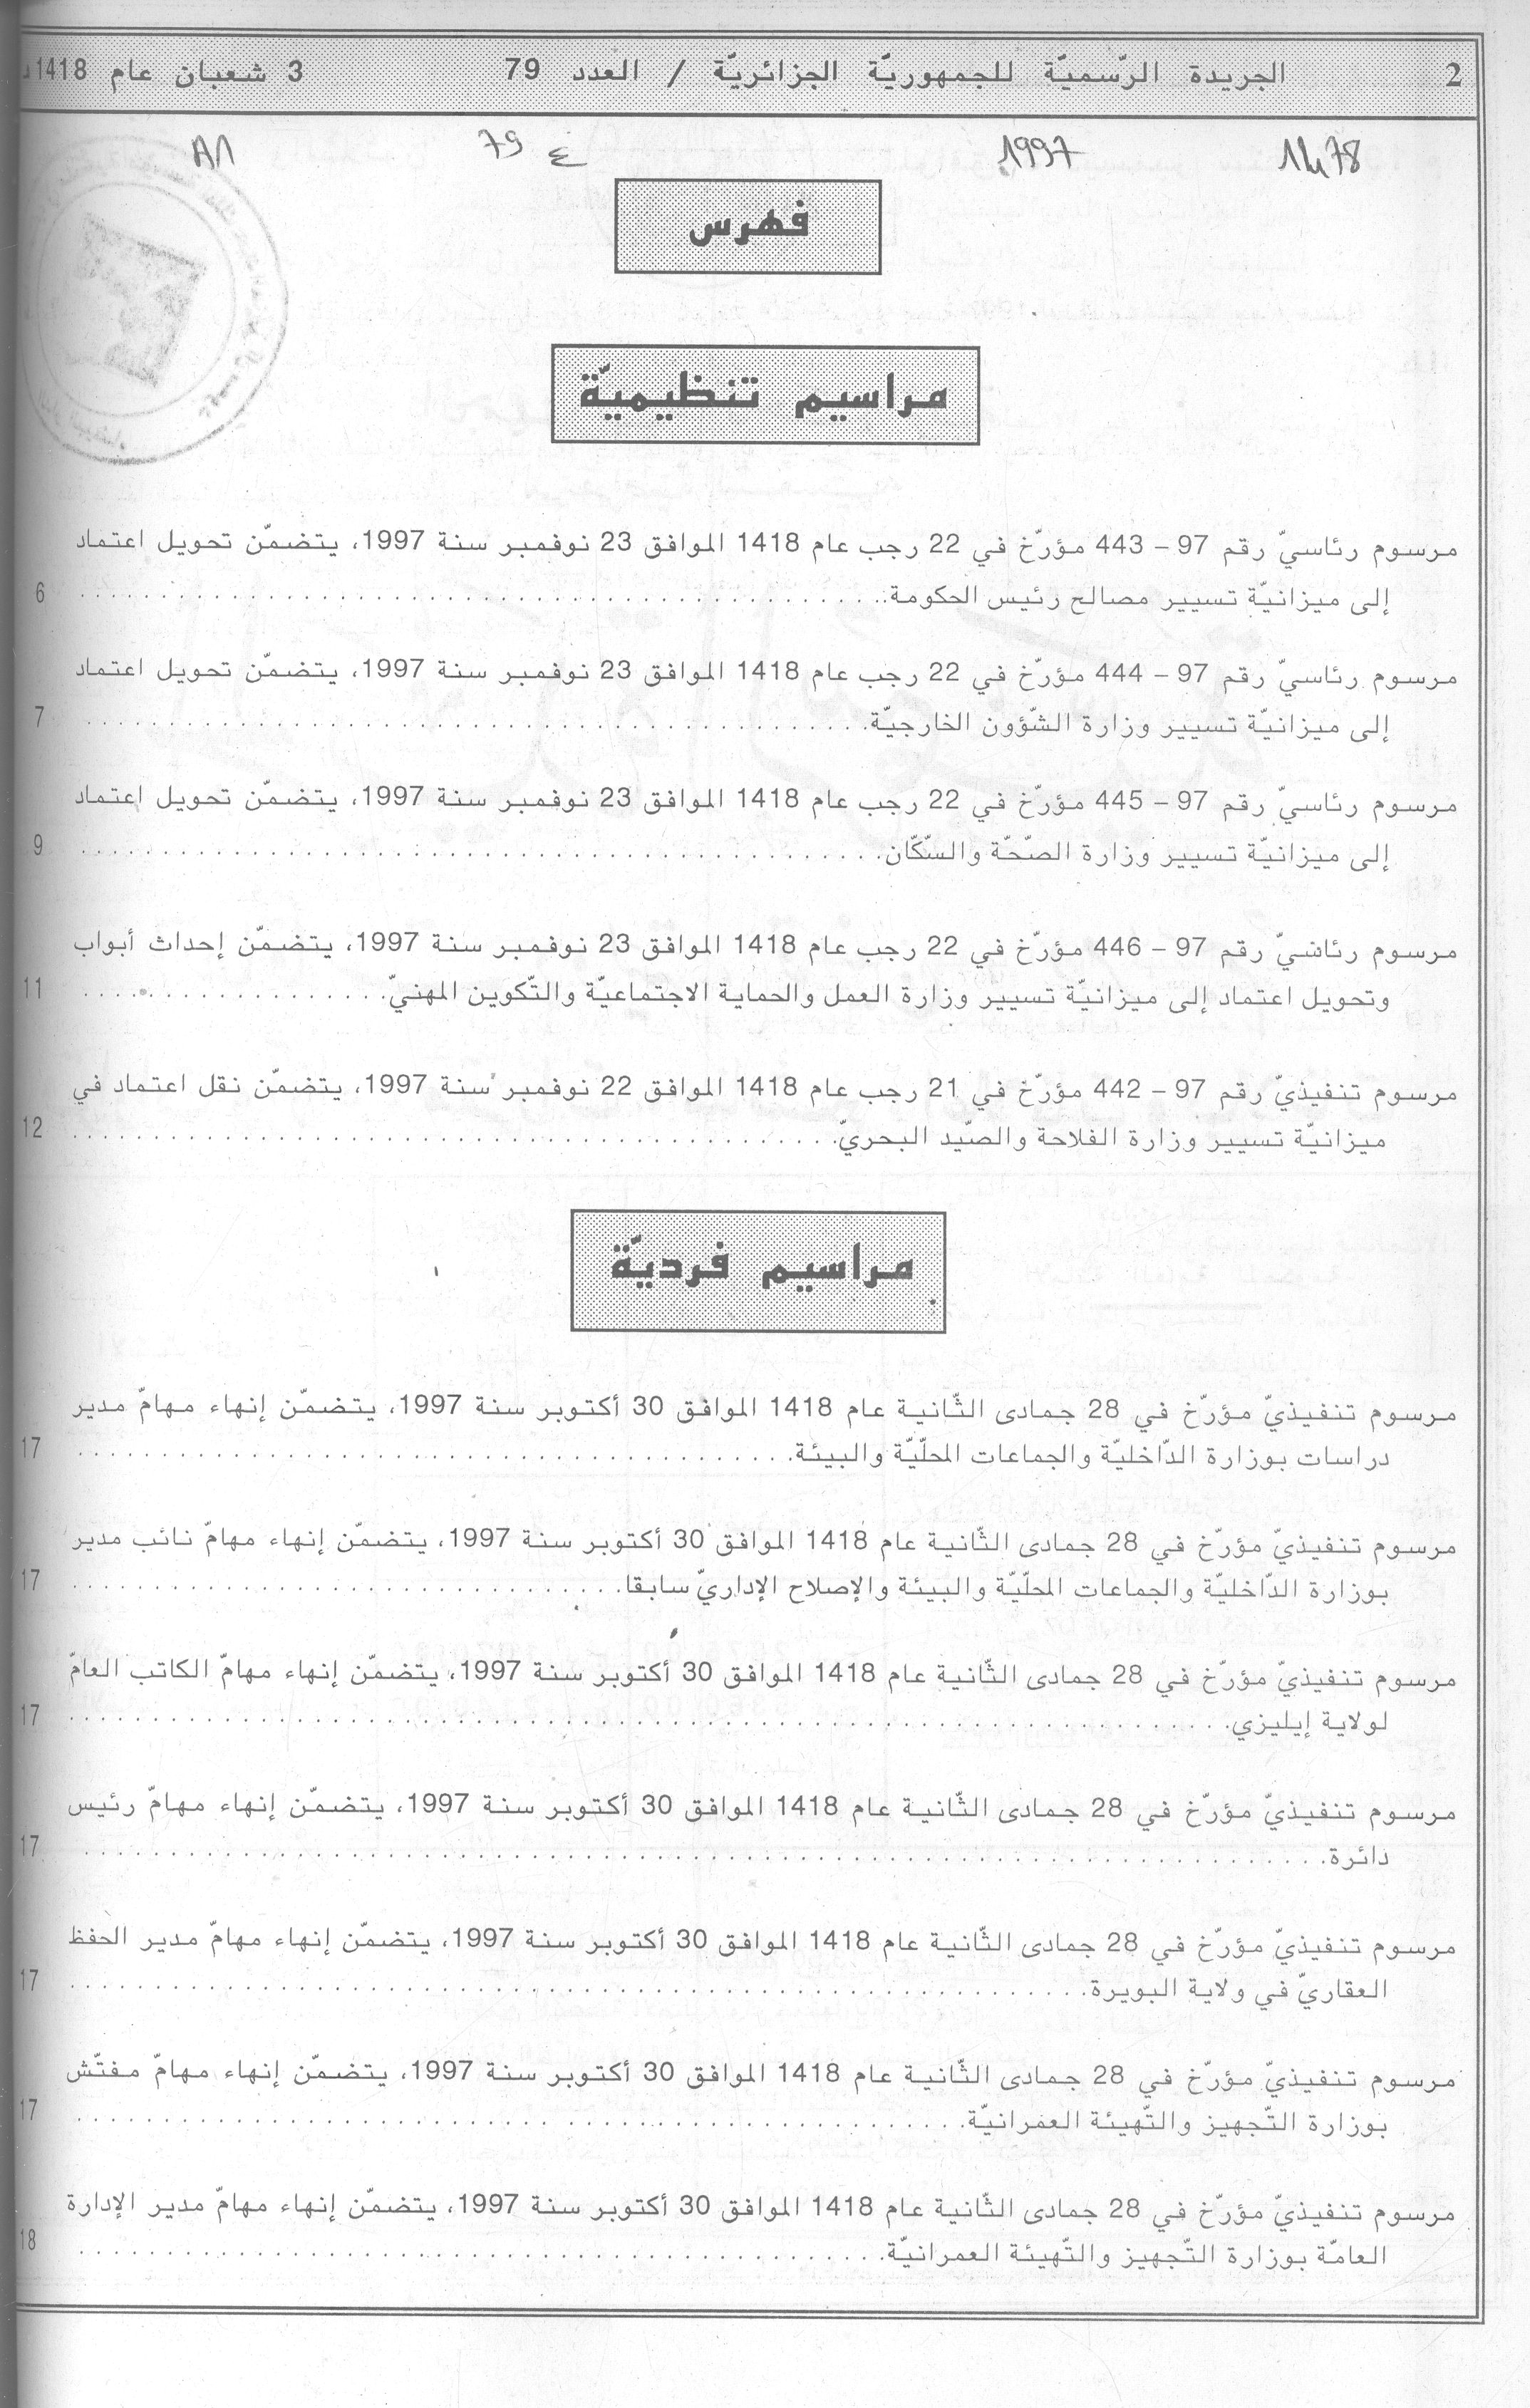 2 الجريدة الرّسميّة للجمهوريّة الجزائريّة / العدد 79 3 شعبان عام 1418
1478 1997 ع 79
فهرس
مراسيم تنظيميّة
مرسوم رئاسيّ رقم 97 – 443 مؤرّخ في 22 رجب عام 1418 الموافق 23 نوفمبر سنة 1997، يتضمّن تحويل اعتماد
إلى ميزانيّة تسيير مصالح رئيس الحكومة. 6
مرسوم رئاسيّ رقم 97 – 444 مؤرّخ في 22 رجب عام 1418 الموافق 23 نوفمبر سنة 1997، يتضمّن تحويل اعتماد
إلى ميزانيّة تسيير وزارة الشّؤون الخارجيّة. 7
مرسوم رئاسيّ رقم 97 – 445 مؤرّخ في 22 رجب عام 1418 الموافق 23 نوفمبر سنة 1997، يتضمّن تحويل اعتماد
إلى ميزانيّة تسيير وزارة الصّحّة والسّكّان. 9
مرسوم رئاسيّ رقم 97 – 446 مؤرّخ في 22 رجب عام 1418 الموافق 23 نوفمبر سنة 1997، يتضمّن إحداث أبواب
وتحويل اعتماد إلى ميزانيّة تسيير وزارة العمل والحماية الاجتماعيّة والتّكوين المهنيّ. 11
مرسوم تنفيذيّ رقم 97 – 442 مؤرّخ في 21 رجب عام 1418 الموافق 22 نوفمبر سنة 1997، يتضمّن نقل اعتماد في
ميزانيّة تسيير وزارة الفلاحة والصّيد البحريّ. 12
مراسيم فرديّة
مرسوم تنفيذيّ مؤرّخ في 28 جمادى الثّانية عام 1418 الموافق 30 أكتوبر سنة 1997، يتضمّن إنهاء مهامّ مدير
دراسات بوزارة الدّاخليّة والجماعات المحلّيّة والبيئة. 17
مرسوم تنفيذيّ مؤرّخ في 28 جمادى الثّانية عام 1418 الموافق 30 أكتوبر سنة 1997، يتضمّن إنهاء مهامّ نائب مدير
بوزارة الدّاخليّة والجماعات المحلّيّة والبيئة والإصلاح الإداريّ سابقا. 17
مرسوم تنفيذيّ مؤرّخ في 28 جمادى الثّانية عام 1418 الموافق 30 أكتوبر سنة 1997، يتضمّن إنهاء مهامّ الكاتب العامّ
لولاية إيليزي. 17
مرسوم تنفيذيّ مؤرّخ في 28 جمادى الثّانية عام 1418 الموافق 30 أكتوبر سنة 1997، يتضمّن إنهاء مهامّ رئيس
دائرة. 17
مرسوم تنفيذيّ مؤرّخ في 28 جمادى الثّانية عام 1418 الموافق 30 أكتوبر سنة 1997، يتضمّن إنهاء مهامّ مدير الحفظ
العقاريّ في ولاية البويرة. 17
مرسوم تنفيذيّ مؤرّخ في 28 جمادى الثّانية عام 1418 الموافق 30 أكتوبر سنة 1997، يتضمّن إنهاء مهامّ مفتّش
بوزارة التّجهيز والتّهيئة العمرانيّة. 17
مرسوم تنفيذيّ مؤرّخ في 28 جمادى الثّانية عام 1418 الموافق 30 أكتوبر سنة 1997، يتضمّن إنهاء مهامّ مدير الإدارة
العامّة بوزارة التّجهيز والتّهيئة العمرانيّة. 18